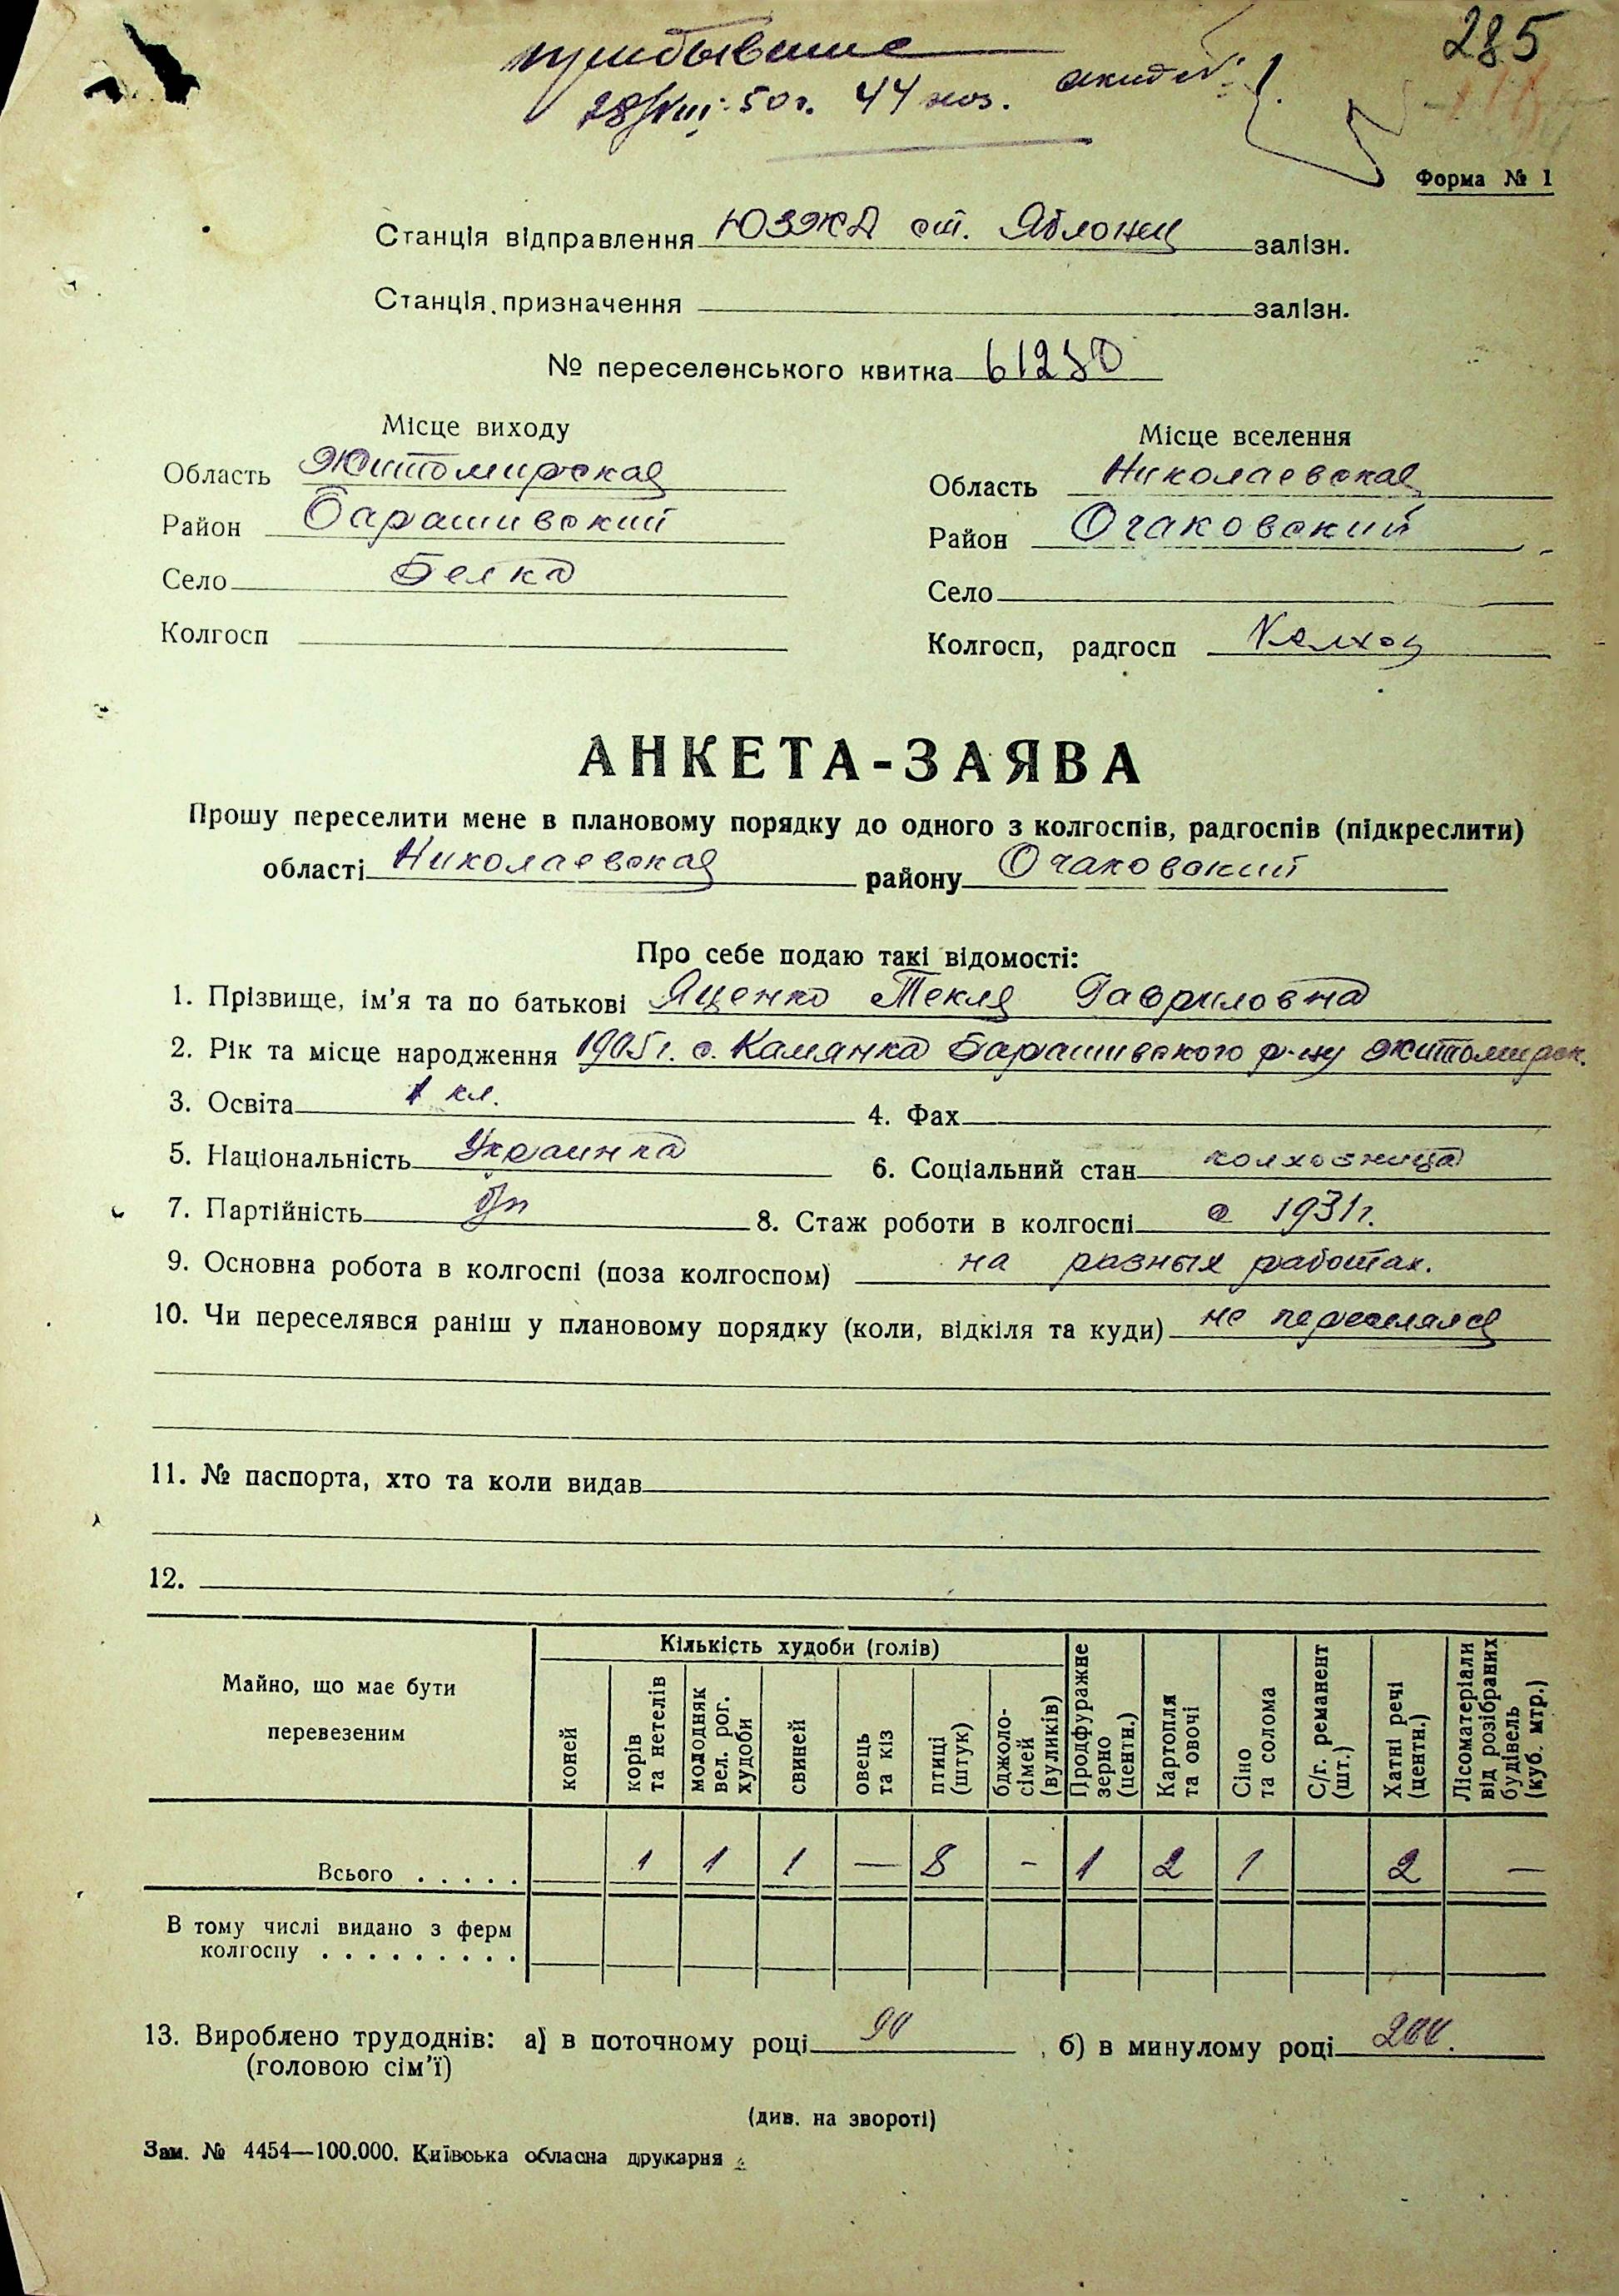 прибывшие
285
28/VIII-50 г. 44 эш.
Форма № 1
Станція відправлення ЮЗЖД ст. Яблонец залізн.
Станція призначення залізн.
№ переселенського квитка 61280
Місце виходу
Місце вселення
Область Житомирская
Область Николаевская
Район Барашивский
Район Очаковский
Село Белка
Село
Колгосп
Колгосп, радгосп Колхоз
АНКЕТА-ЗАЯВА
Прошу переселити мене в плановому порядку до одного з колгоспів, радгоспів (підкреслити)
області Николаевская району Очаковский
Про себе подаю такі відомості:
1. Прізвище, ім'я та по батькові Яценко Текля Гавриловна
2. Рік та місце народження 1905 г. с. Камянка Барашивского р-ну Житомирск.
3. Освіта 1 кл. 4. Фах
5. Національність Украинка 6. Соціальний стан колхозница
7. Партійність б/п 8. Стаж роботи в колгоспі с 1931 г.
9. Основна робота в колгоспі (поза колгоспом) на разных работах.
10. Чи переселявся раніш у плановому порядку (коли, відкіля та куди) не переселялся
11. № паспорта, хто та коли видав
12.
Майно, що має бути перевезеним
Кількість худоби (голів)
коней
корів та нетелів
молодняк вел. рог. худоби
свиней
овець та кіз
птиці (штук)
бджоло-сімей (вуликів)
Продфуражне зерно (центн.)
Картопля та овочі
Сіно та солома
С/г. реманент (шт.)
Хатні речі (центн.)
Лісоматеріали від розібраних будівель (куб. мтр.)
Всього . . . . . 1 1 1 — 8 - 1 2 1 2 —
В тому числі видано з ферм
колгоспу . . . . . . . . .
13. Вироблено трудоднів: а) в поточному році 90, б) в минулому році 200.
(головою сім'ї)
(див. на звороті)
Зам. № 4454—100.000. Київська обласна друкарня